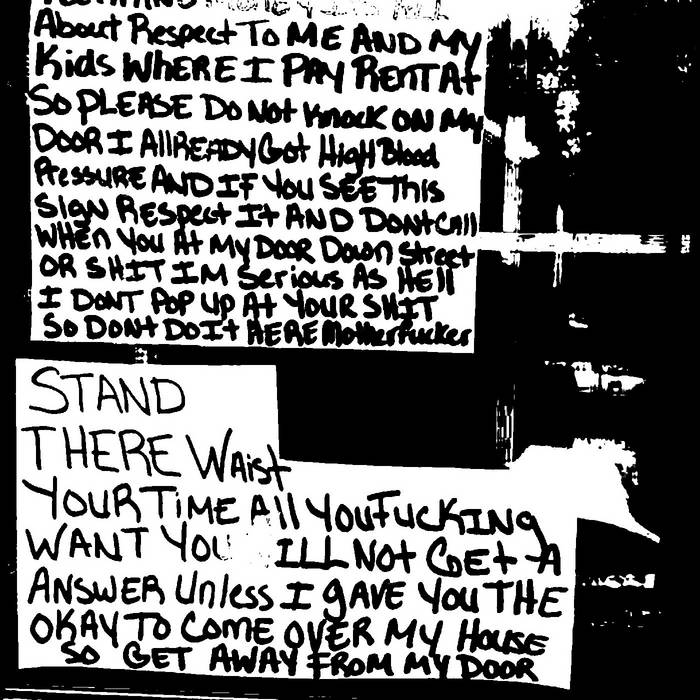 About Respect To ME AND MY
Kids WHERE I PAY RENT At
SO PLEASE DO NOt KnocK ON My
DOOR I AllREADY Got HigH Blood
PRESSURE AND IF YOU SEE THis
SIgN RESpect It AND DONt CAll
WHEN YOU At MY DOOR DOWN StREEt
OR SHIT IM SERIOUS AS HEll
I DONT POP UP At YOUR SHIT
SO DONt DO It HERE MotHERFucKER
STAND
THERE WAist
YOUR TiME All YOU FUCKING
WANT YOU ILL NOt GEt A
ANSWER Unless I gAVE YOU THE
OKAY TO COME OVER MY HOUSE
SO GET AWAY FROM MY DOOR